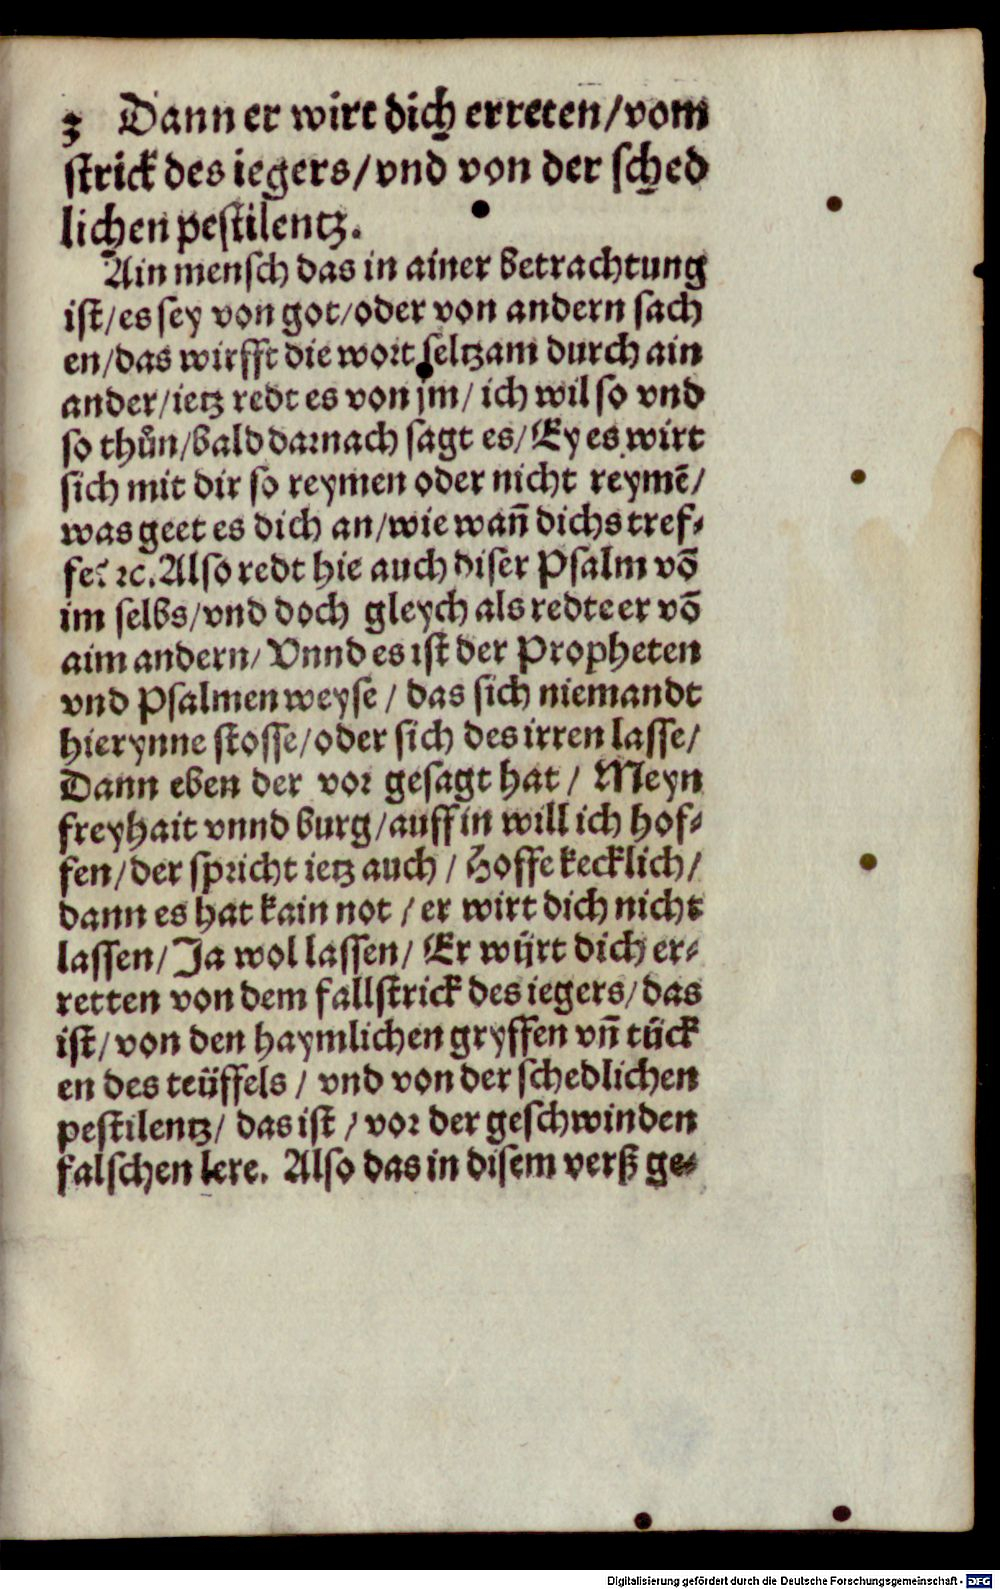 3 Dann er wirt dich erreten/vom
strick des iegers/vnd von der sched
lichen pestilentz.
Ain mensch das in ainer betrachtung
ist/es sey von got/oder von andern sach
en/das wirfft die wort seltzam durch ain
ander/ietz redt es von jm/ ich wil so vnd
so thůn/bald darnach sagt es/Ey es wirt
sich mit dir so reymen oder nicht reymē/
was geet es dich an/wie wañ dichs tref⸗
fe? ꝛc. Also redt hie auch diser Psalm võ
im selbs/vnd doch gleych als redte er võ
aim andern/ Vnnd es ist der Propheten
vnd Psalmen weyse / das sich niemandt
hierynne stosse/oder sich des irren lasse/
Dann eben der vor gesagt hat / Meyn
freyhait vnnd burg/auff in will ich hof⸗
fen/der spricht ietz auch / Hoffe kecklich/
dann es hat kain not / er wirt dich nicht
lassen/Ja wol lassen/ Er wijrt dich er⸗
retten von dem fallstrick des iegers/das
ist/von den haymlichen gryffen vñ tück
en des teüffels / vnd von der schedlichen
pestilentz/ das ist / vor der geschwinden
falschen lere. Also das in disem verß ge⸗
Digitalisierung gefördert durch die Deutsche Forschungsgemeinschaft - DFG